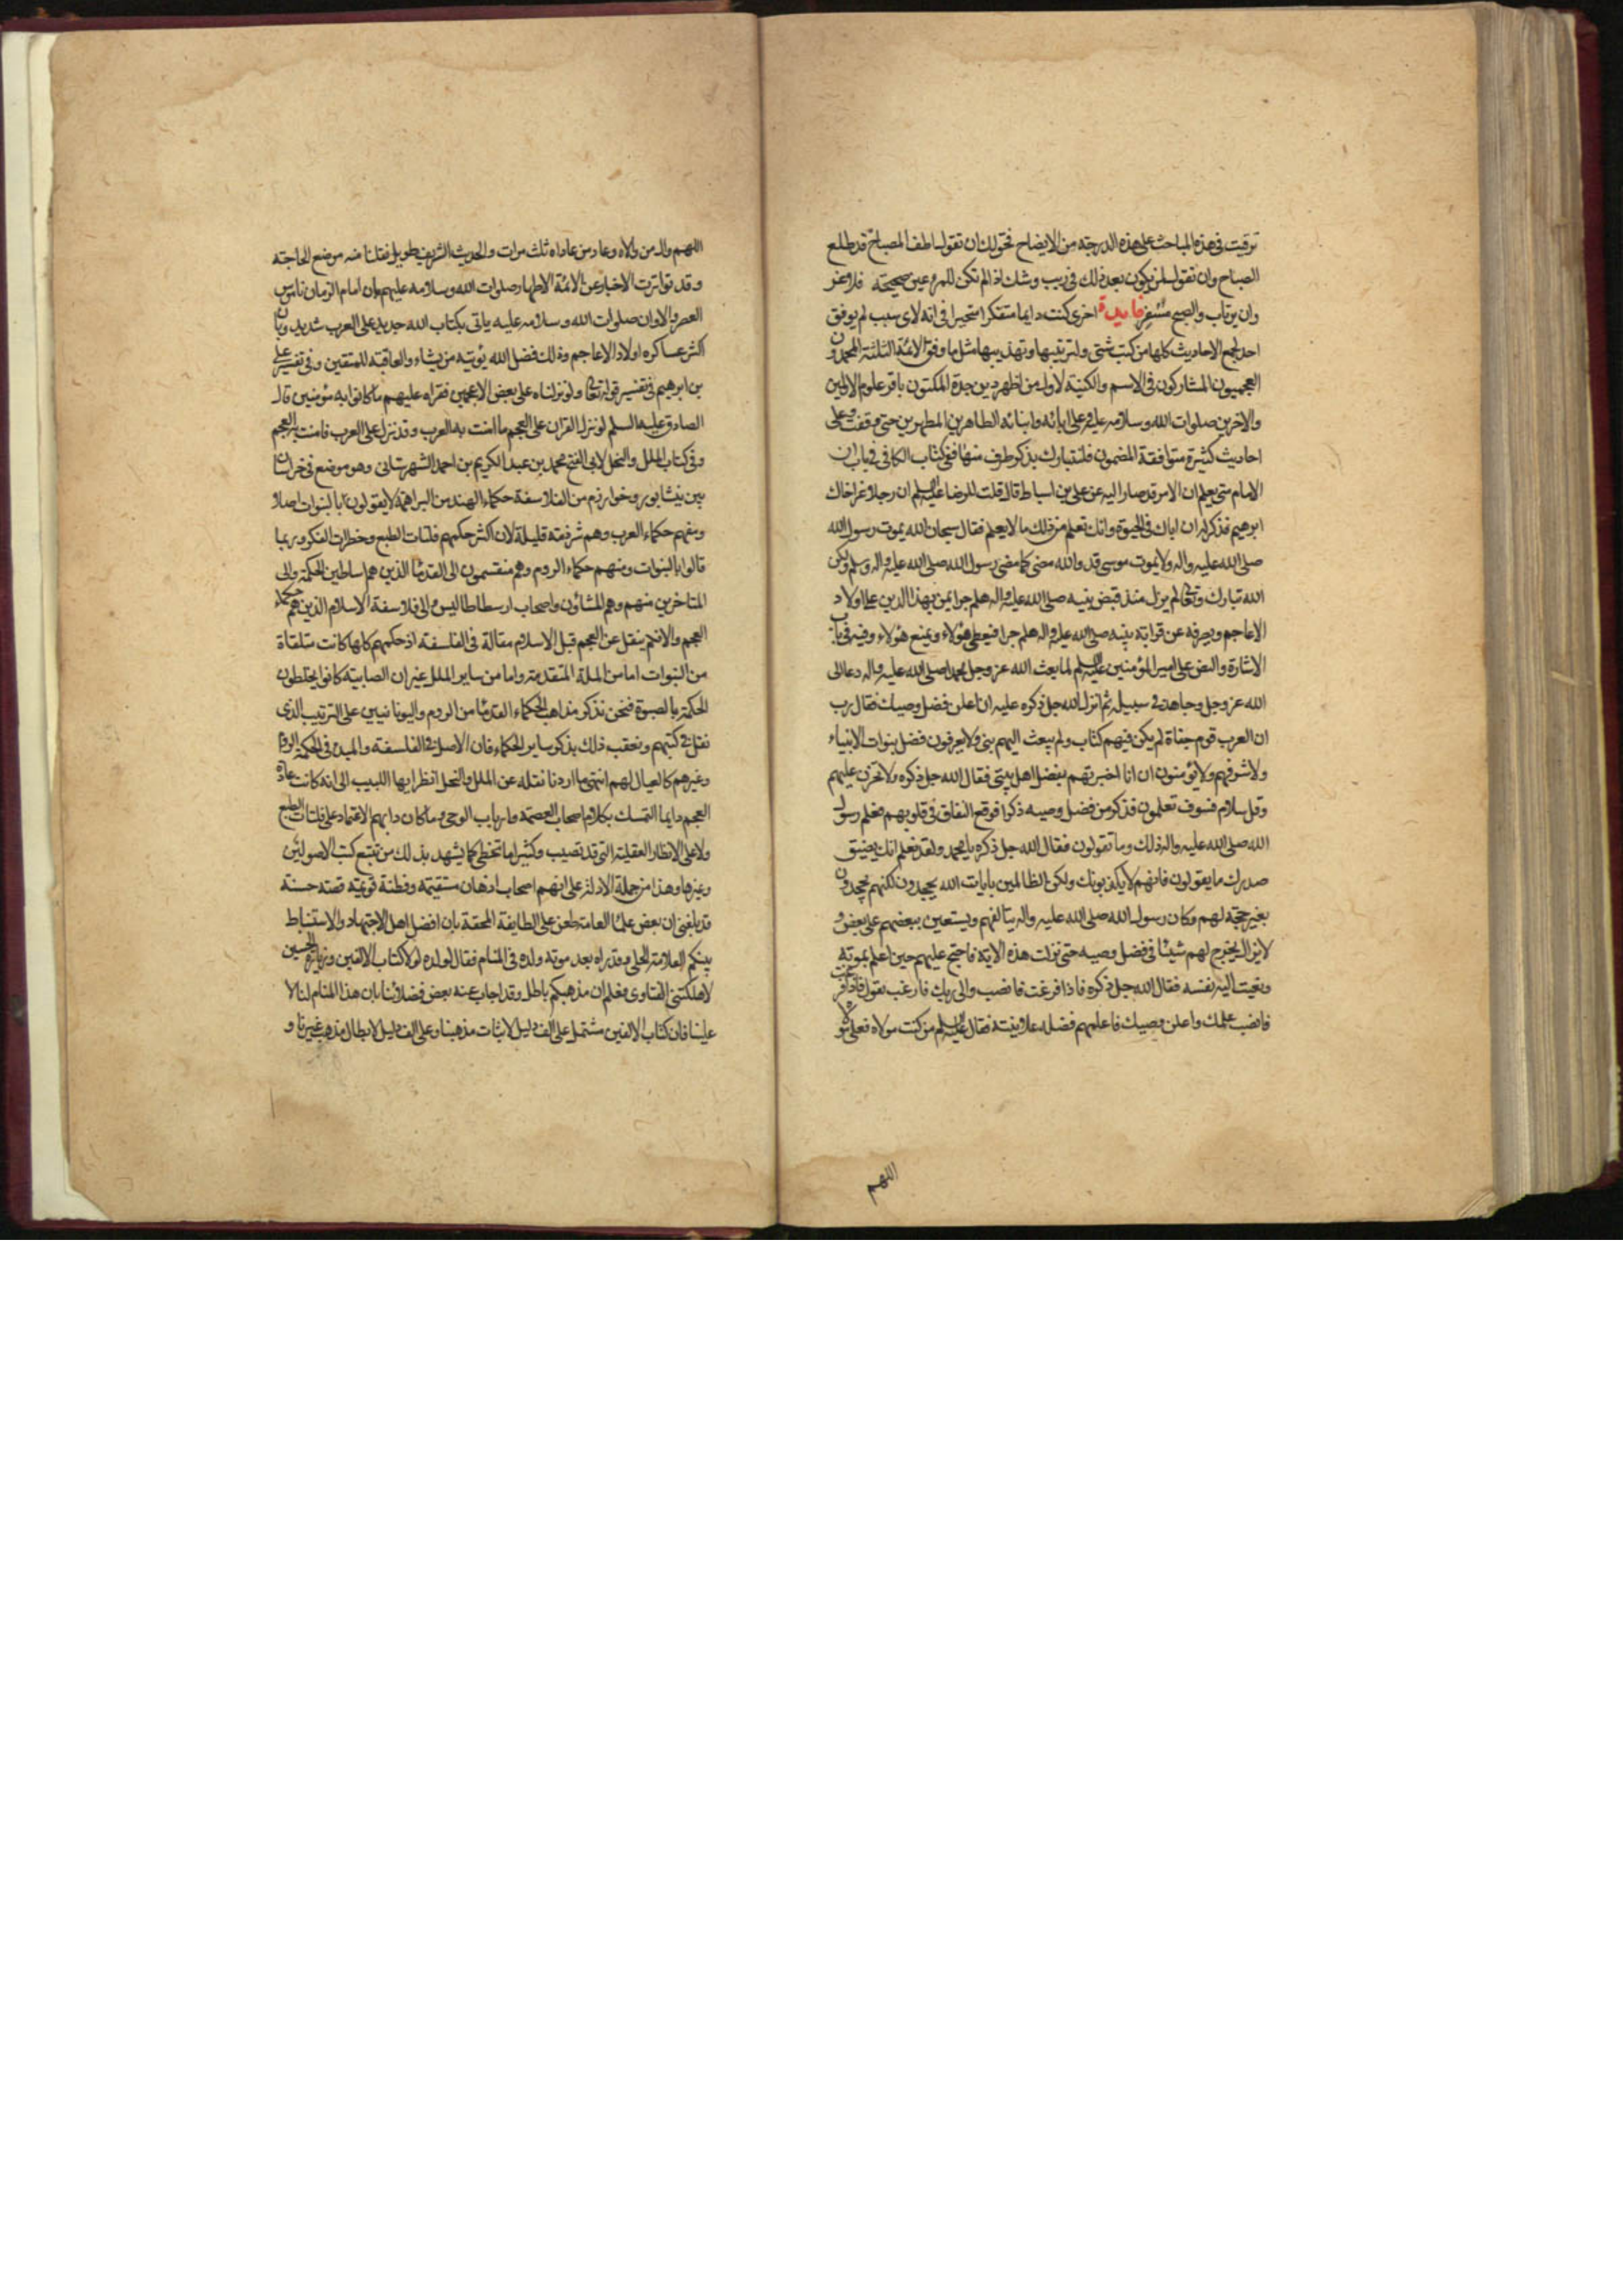 ترقيت فى هذه المباحث على هذه الدرجة من الايضاح فحق لك ان تقول اطف المصباح قد طلع
الصباح وان تقول لمن يكون بعد ذلك فى ريب وشك اذا لم تكن للمرء عين صحيحة فلا غر
وان يرتاب والصبح مسفر فايدة اخرى كنت دايما متفكرا متحيرا فى انه لاى سبب لم يوفق
احد لجمع الاحاديث كلها من كتب شتى ولترتيبها وتهذيبها مثل ما وفق الائمة الثلثة المحمدون
العجميون المشاركون فى الاسم والكنية لاول من اظهر دين جده المكنون باقر علوم الاولين
والاخرين صلوات الله وسلامه عليه وعلى ابائه وابنائه الطاهرين المطهرين حتى وقفت على
احاديث كثيرة متوافقة المضمون فلنتبارك بذكر طرف منها ففى كتاب الكافى فى باب ان
الامام متى يعلم ان الامر قد صار اليه عن على بن اسباط قال قلت للرضا عليه السلم ان رجلا غر اخاك
ابرهيم فذكر له ان اباك فى الحيوة وانك تعلم من ذلك ما لا يعلم فقال سبحان الله يموت رسول الله
صلى الله عليه واله ولا يموت موسى قد والله مضى كما مضى رسول الله صلى الله عليه واله وسلم ولكن
الله تبارك وتعالى لم يزل منذ قبض نبيه صلى الله عليه واله هلم جرا يمن بهذا الدين على اولاد
الاعاجم ويصرفه عن قرابة نبيه صلى الله عليه واله هلم جرا فيعطى هؤلاء ويمنع هؤلاء وفيه فى باب
الاشارة والنص على امير المؤمنين عليه السلم لما بعث الله عز وجل محمدا صلى الله عليه واله دعا الى
الله عز وجل وجاهد فى سبيله ثم انزل الله جل ذكره عليه ان اعلن فضل وصيك فقال رب
ان العرب قوم جفاة لم يكن فيهم كتاب ولم يبعث اليهم نبى ولا يعرفون فضل نبوات الانبياء
ولا شرفهم ولا يؤمنون ان انا اخبرتهم بفضل اهل بيتى فقال الله جل ذكره ولا تحزن عليهم
وقل سلام فسوف تعلمون فذكر من فضل وصيه ذكرا فوقع النفاق فى قلوبهم فعلم رسول
الله صلى الله عليه واله ذلك وما تقولون فقال الله جل ذكره يا محمد ولقد نعلم انك يضيق
صدرك ما يقولون فانهم لا يكذبونك ولكن الظالمين بايات الله يجحدون لكنهم يجحدون
بغير حجة لهم وكان رسول الله صلى الله عليه واله يتالفهم ويستعين ببعضهم على بعض و
لا يزال يخرج لهم شيئا فى فضل وصيه حتى نزلت هذه الاية فاحتج عليهم حين اعلم بموته
ونعيت اليه نفسه فقال الله جل ذكره فاذا فرغت فانصب والى ربك فارغب يقول فاذا فرغت
فانصب علمك واعلن وصيك فاعلمهم فضله علانية فقال عليه السلم من كنت مولاه فعلى مولاه
اللهم
اللهم وال من والاه وعاد من عاداه ثلث مرات والحديث الشريف طويل نقلنا منه موضع الحاجة
وقد تواترت الاخبار عن الائمة الاطهار صلوات الله وسلامه عليهم بان امام الزمان ناموس
العصر والاوان صلوات الله وسلامه عليه ياتى بكتاب الله جديد على العرب شديد وبان
اكثر عساكره اولاد الاعاجم وذلك فضل الله يؤتيه من يشاء والعاقبة للمتقين وفى تفسير على
بن ابرهيم فى تفسير قوله تعالى ولو نزلناه على بعض الاعجمين فقراه عليهم ما كانوا به مؤمنين قال
الصادق عليه السلم لو نزل القران على العجم ما امنت به العرب وقد نزل على العرب فامنت به العجم
وفى كتاب الملل والنحل لابى الفتح محمد بن عبد الكريم بن احمد الشهرستانى وهو موضع فى خراسان
بين نيشابور وخوارزم من الفلاسفة حكماء الهند من البراهمة لا يقولون بالنبوات اصلا
ومنهم حكماء العرب وهم شرذمة قليلة لان اكثر حكمهم فلتات الطبع وخطرات الفكر وربما
قالوا بالنبوات ومنهم حكماء الروم وهم منقسمون الى القدما الذين هم اساطين الحكمة والى
المتاخرين منهم وهم المشاؤن واصحاب ارسطاطاليس والى فلاسفة الاسلام الذين هم حكماء
العجم والا فلم ينقل عن العجم قبل الاسلام مقالة فى الفلسفة اذ حكمهم كلها كانت متلقاة
من النبوات اما من الملة المتقدمة واما من ساير الملل غير ان الصابية كانوا يخلطون
الحكمة بالصبوة فنحن نذكر مذاهب الحكماء القدما من الروم واليونانيين على الترتيب الذى
نقل فى كتبهم ونعقب ذلك بذكر ساير الحكماء فان الاصل فى الفلسفة والمبدء فى الحكمة الروم
وغيرهم كالعيال لهم انتهى ما اردنا نقله عن الملل والنحل انظر ايها اللبيب الى انه كانت عادة
العجم دايما التمسك بكلام اصحاب العصمة وارباب الوحى وما كان دابهم الاعتماد على فلتات الطبع
ولا على الانظار العقلية التى قد تصيب وكثيرا ما تخطى كما يشهد بذلك من تتبع كتب الاصوليين
وغيرها وهذا من جملة الادلة على انهم اصحاب اذهان مستقيمة وفطنة قويمة قصة حسنة
قد بلغنى ان بعض علما العامة طعن على الطايفة المحقة بان افضل اهل الاجتهاد والاستنباط
بينكم العلامة الحلى وقد راه بعد موته ولده فى المنام فقال لولده لولا كتاب الالفين وزيارة الحسين
لاهلكتنى الفتاوى فعلم ان مذهبكم باطل وقد اجاب عنه بعض فضلائنا بان هذا المنام لنا لا
علينا فان كتاب الالفين مشتمل على الف دليل لاثبات مذهبنا وعلى الف دليل لابطال مذهب غيرنا و